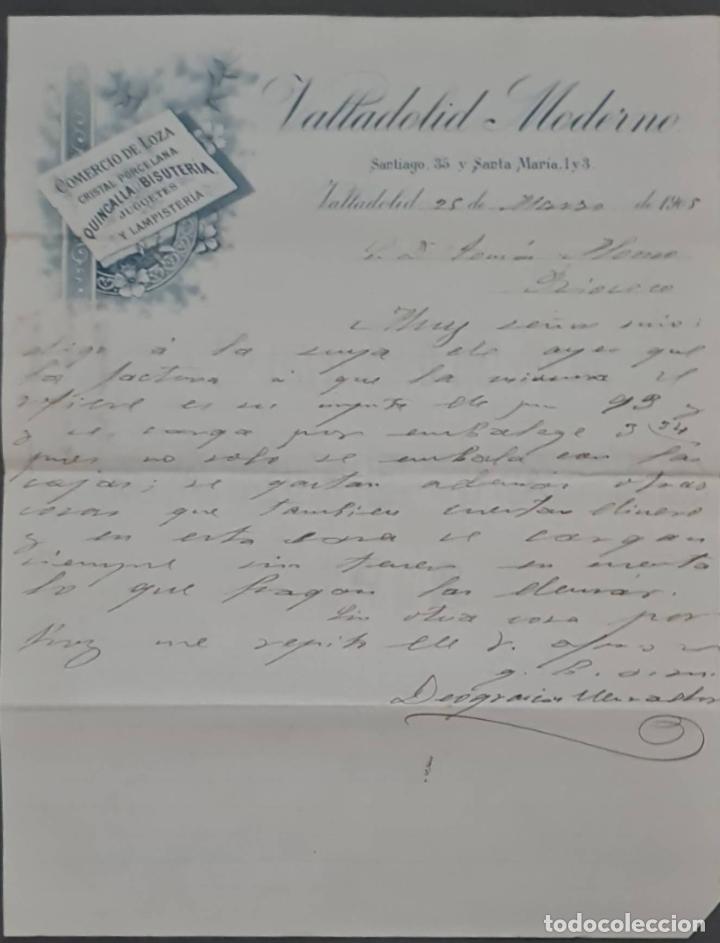 Valladolid Moderno
COMERCIO DE LOZA
CRISTAL PORCELANA
QUINCALLA BISUTERÍA
JUGUETES
Y LAMPISTERIA
Santiago, 35 y Santa María, 1 y 3.
Valladolid 25 de Marzo de 1905
S. D. Tomás Alonso
Rioseco
Muy señor mio:
digo á la suya de ayer que
la factura á que la misma se
refiere es su importe de 93
y se carga por embalage 3
pues no solo se embala con las
cajas; se gastan además otras
cosas que tambien cuestan dinero
y en esta casa se cargan
siempre sin tener en cuenta
lo que hagan los demás.
Sin otra cosa por
hoy me repito de V. afmo
q. b. s. m.
Deogracias
todocoleccion